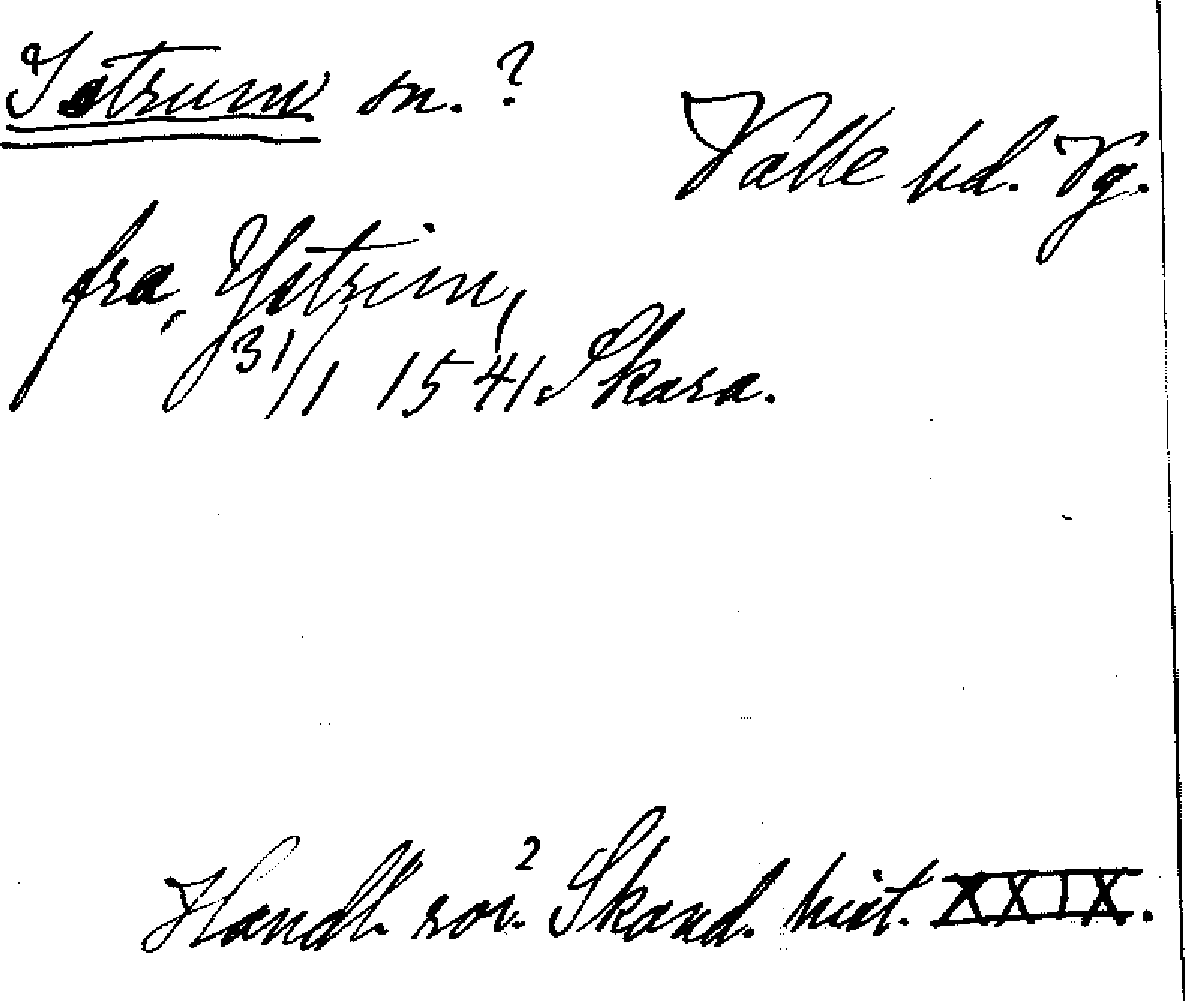 Istrum sn.?
Valle hd. Vg.
fra, Ystrim,
31/1 1541. Skara.
Handl. rör. Skand. hist. XXIX.